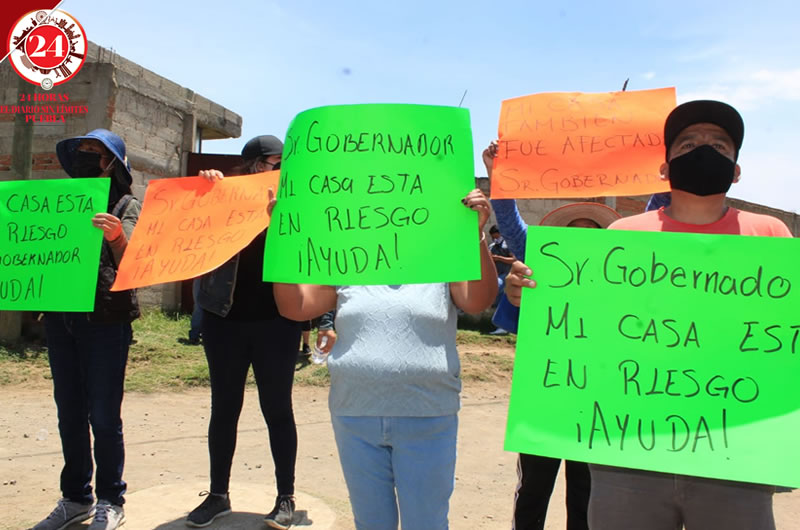 24
24 HORAS
EL DIARIO SIN LÍMITES
PUEBLA
CASA ESTA
RIESGO
GOBERNADOR
UDA!
SR. GOBERNADOR
MI CASA ESTA
EN RIESGO
¡AYUDA!
SR. GOBERNADOR
MI CASA ESTA
EN RIESGO
¡AYUDA!
TAMBIEN
FUE AFECTADA
SR. GOBERNADO
Sr. Gobernado
MI CASA EST
EN RIESGO
¡AYUDA!